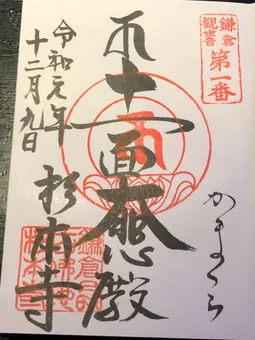 鎌倉
観世音
第一番
かまくら
十一面大悲殿
杉本寺
令和元年
十二月九日